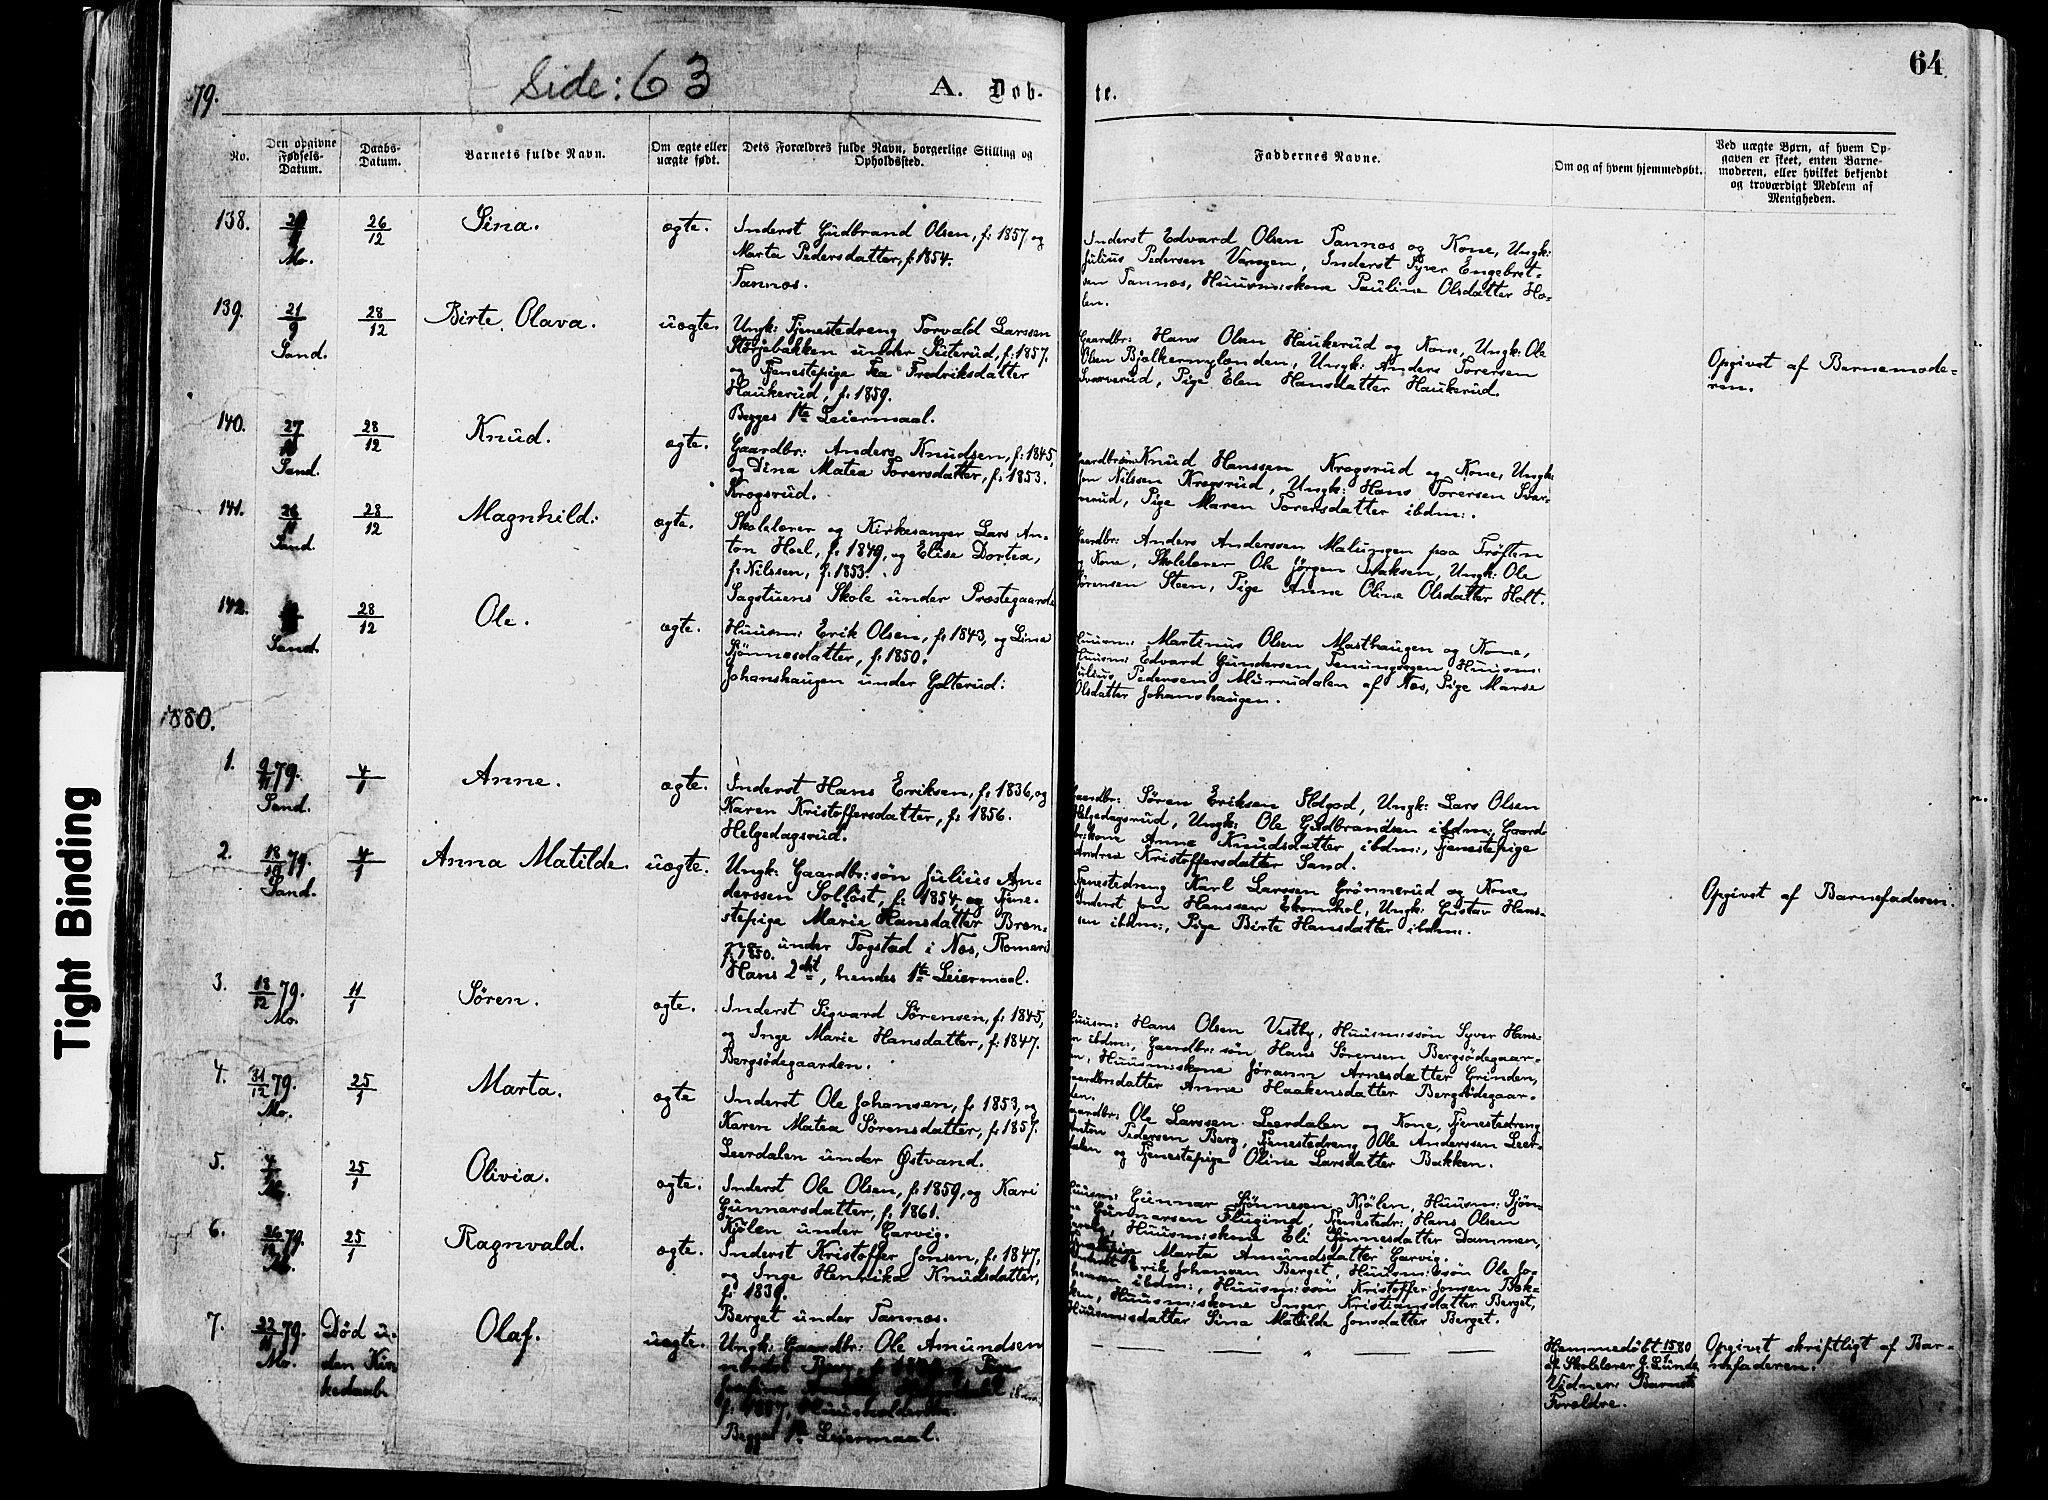 Side: 63
A. Døb-
te.
64
79.
No.
Den opgivne Fødsels-Datum.
Daabs-Datum.
Barnets fulde Navn.
Om ægte eller uægte født.
Dets Forældres fulde Navn, borgerlige Stilling og Opholdssted.
Faddernes Navne.
Om og af hvem hjemmedøbt.
Ved uægte Børn, af hvem Op-
gaven er skeet, enten Barne-
moderen, eller hvilket bekjendt
og troværdigt Medlem af
Menigheden.
138.
Mo.
26/12
Sina.
ægte.
Inderst Gudbrand Olsen, f: 1857 og
Marta Pedersdatter, f: 1854.
Tannæs.
Inderst Edvard Olsen Tannæs og Kone, Ungk:
Julius Pedersen, Inderst Syver Engebret-
sen Tannæs, Huusm:skone Pauline Olsdatter Ho-
len.
139.
21/9
Sand.
28/12
Birte Olava.
uægte.
Ungk: Tjenestedreng Torvald Larssen
Störjebakken under Suterud, f: 1857.
og Tjenestepige Fredriksdatter
Haukerud, f: 1859.
Begges 1te Leiermaal.
Gaardbr: Hans Olsen Haukerud og Kone, Ungk: Ole
Olsen, Ungk: Anders Torersen
Svarverud, Pige Elen Hansdatter Haukerud.
Opgivet af Barnemode-
ren.
140.
27
Sand.
28/12
Knud.
ægte.
Gaardbr: Anders Knudsen, f: 1845,
og Dina Matea Torersdatter, f: 1853.
Krogsrud.
Knud Hanssen Krogsrud og Kone, Ungk:
Nilssen Krogsrud, Ungk: Hans Torersen Svar-
Pige Maren Torersdatter ibdm:.
141.
Sand.
28/12
Magnhild.
ægte.
Skolelærer og Kirkesanger Lars An-
ton Hoel, f: 1849, og Elise Dortea,
f: Nilssen, f: 1853.
Sagstuens Skole under Præstegaarde
Anders Anderssen Malungen paa Tröften
og Kone, Skolelærer Ole Jörgen Isaksen, Ungk: Ole
Sörensen Steen, Pige Anne Oline Olsdatter Holt.
142.
Sand.
28/12
Ole.
ægte.
Huusm: Erik Olsen, f: 1843, og Lina
Sjönnesdatter, f: 1850.
Johanshaugen under Golterud:
Huusm: Martinus Olsen Masthaugen og Kone,
Huusm: Edvard Gundersen, Huusm:
Julius Pedersen Murrudalen af Næs, Pige Marie
Olsdatter Johanshaugen.
1880.
1.
9/11 79.
Sand.
4/1
Anne.
ægte.
Inderst Hans Eriksen, f: 1836, og
Karen Kristoffersdatter, f: 1856.
Helgedagsrud.
Gaardbr: Sören Eriksen, Ungk: Lars Olsen
Helgedagsrud, Ungk: Ole Gudbrandsen ibdm:, Gaard-
br:kone Anne Knudsdatter ibdm:, Tjenestepige
Andrea Kristoffersdatter Sand.
2.
79.
Sand.
4/1
Anna Matilde
uægte.
Ungk: Gaardbr:sön Julius An-
derssen Solföst, f: 1854, og Tjene-
stepige Marie Hansdatter Bræn-
under Togstad i Næs, Romeri
f: 1850.
Hans 2det, hendes 1te Leiermaal.
Tjenestedreng Karl Larssen Grönnerud og Kone
Inderst Jon Hanssen Ekornhol, Ungk: Gustav Hans-
sen ibdm:, Pige Birte Hansdatter ibdm:.
Opgivet af Barnefaderen.
3.
13/12 79.
Mo.
11/1
Sören.
ægte.
Inderst Sigvard Sörensen, f: 1845,
og Inge Marie Hansdatter, f: 1847.
Bergsödegaarden.
Huusm: Hans Olsen Vestby, Huusm:sön Syver Hans-
ibdm:, Gaardbr:sön Hans Sörensen Bergsödegaar-
Huusm:skone Jörann Arnesdatter Grinden,
Gaardbrsdatter Anne Haakensdatter Bergsödegaar-
den.
4.
31/12 79.
Mo.
25/1
Marta.
ægte
Inderst Ole Johansen, f: 1853, og
Karen Matea Sörensdatter, f: 1857.
Leerdalen under Östvand.
Gaardbr: Ole Larssen Leerdalen og Kone, Tjenestedreng
Anton Pedersen Berg, Tjenestedreng Ole Anderssen Leer-
dalen og Tjenestepige Oline Larsdatter Bakken.
5.
25/1
Olivia.
ægte.
Inderst Ole Olsen, f: 1859, og Kari
Gunnarsdatter, f: 1861.
Kjölen under Garvig.
Huusm: Gunnar Sjönnesen Kjölen, Huusm: Sjön-
ne Gunnarsen, Tjenestedr: Hans Olsen
Huusm:skone Eli Sjönnesdatter Dammen,
Marta Amundsdatter Garvig.
6.
79.
25/1
Ragnvald.
ægte.
Inderst Kristoffer Jonsen, f: 1847,
og Inge Henrika Knudsdatter,
Berget under Tannæs.
Erik Johansen Berget, Huusm:sön Ole Jo-
hansen ibdm:, Huusm:sön Kristoffer Jonsen Bak-
ken, Huusm:skone Inger Kristiansdatter Berget,
Huusm:sdatter Sina Matilde Jonsdatter Berget.
7.
79.
Mo.
Död u-
den Kir-
kedaab.
Olaf.
uægte.
Ungk: Gaardbr: Ole Amundsen
Begges 1te Leiermaal.
Hjemmedöbt
af Skolelærer J. Lunde
Vidner: Barnets
Forældre.
Opgivet skriftligt af Bar-
nefaderen.
Tight Binding